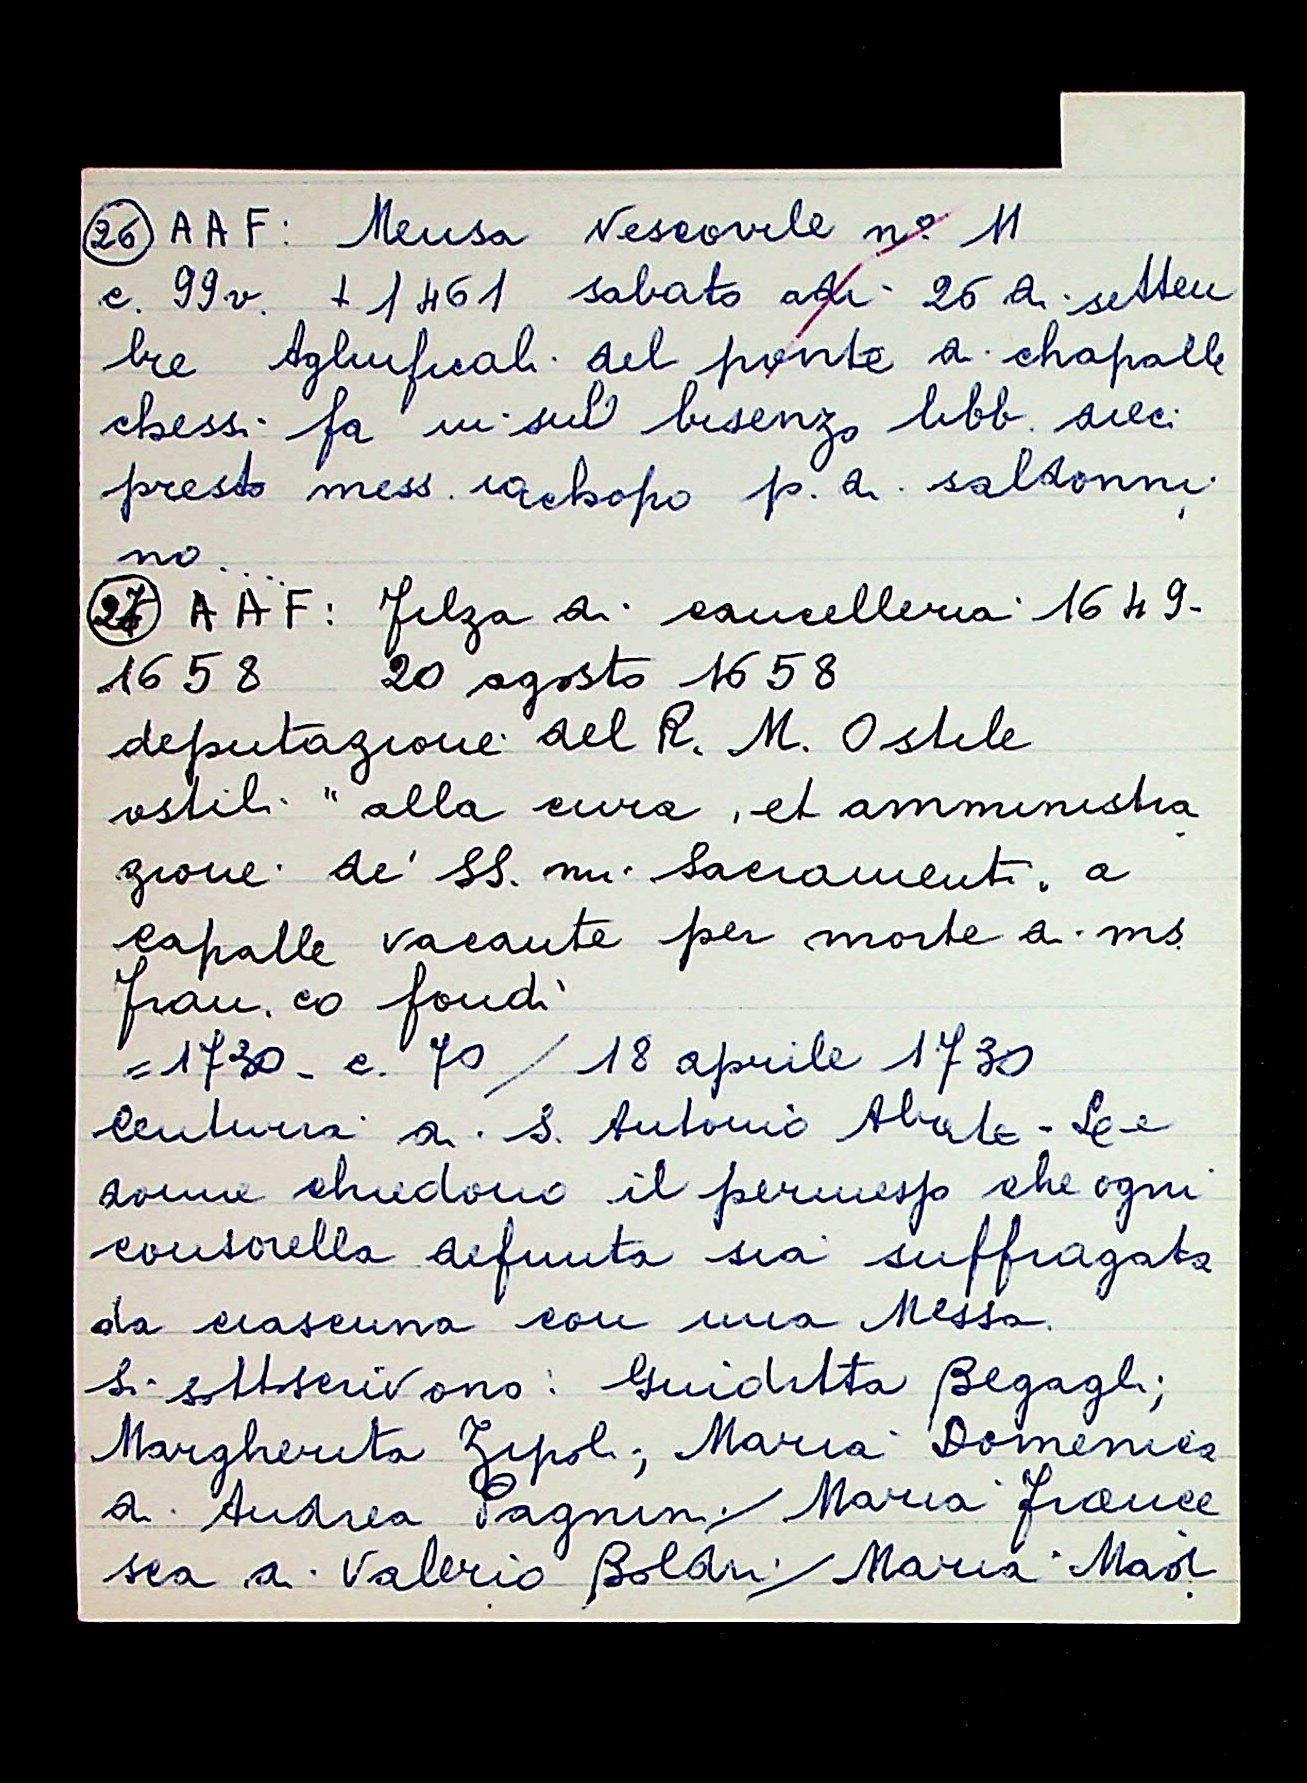 26 A A F: Mensa Vescovile n.º 11
c. 99v. + 1461 sabato adi 26 di settem
bre Agluficali del ponte di chapalle
chessi fa in sul bisenzo libb. dieci
presto mess. iachopo p. di saldonni
no....
27 A A F: Filza di cancelleria 1649-
1658 20 agosto 1658
deputazione del R. M. Ostile
ostili "alla cura, et amministra
zione de' SS. mi Sacramenti, a
capalle vacante per morte di ms.
fran. co fondi
=1730- c. 70 / 18 aprile 1730
Centuria di S. Antonio Abate - Le
donne chiedono il permesso che ogni
consorella defunta sia suffragata
da ciascuna con una Messa.
Si sottoscrivono: Guidetta Begagli;
Margherita Zipoli; Maria Domenica
di Andrea Pagnini / Maria France
sca di Valerio Boldri / Maria Mad